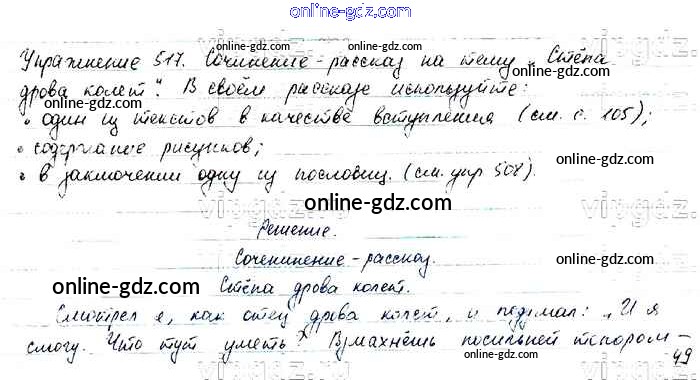 online-gdz.com
Упражнение 517. Сочинение-рассказ на тему „Стёпа
online-gdz.com online-gdz.com
дрова колет“. В своём рассказе используйте:
online-gdz.com online-gdz.com
• один из текстов в качестве вступления (см. с. 105);
• содержание рисунков;
online-gdz.com
• в заключении одну из пословиц. (см. упр 508).
online-gdz.com
Решение.
online-gdz.com
Соченинение-рассказ.
online-gdz.com online-gdz.com
Стёпа дрова колет.
Смотрел я, как отец дрова колет, и подумал: „И я
смогу. Что тут уметь? Взмахнёшь посильней топором –
49